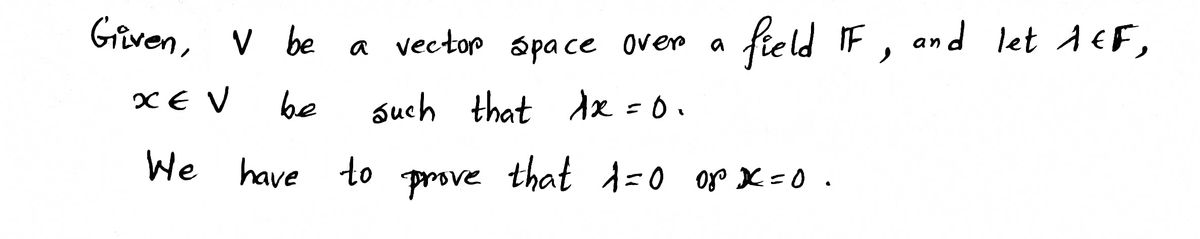 Given, V be a vector space over a field F, and let λ ∈ F,
x ∈ V be such that λx = 0.
We have to prove that λ=0 or x=0.